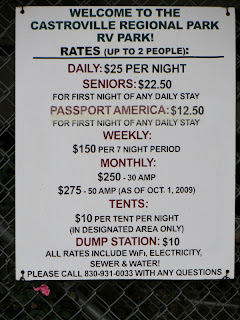 WELCOME TO THE
CASTROVILLE REGIONAL PARK
RV PARK!
RATES (UP TO 2 PEOPLE):
DAILY: $25 PER NIGHT
SENIORS: $22.50
FOR FIRST NIGHT OF ANY DAILY STAY
PASSPORT AMERICA: $12.50
FOR FIRST NIGHT OF ANY DAILY STAY
WEEKLY:
$150 PER 7 NIGHT PERIOD
MONTHLY:
$250 - 30 AMP
$275 - 50 AMP (AS OF OCT. 1, 2009)
TENTS:
$10 PER TENT PER NIGHT
(IN DESIGNATED AREA ONLY)
DUMP STATION: $10
ALL RATES INCLUDE WiFi, ELECTRICITY,
SEWER & WATER!
PLEASE CALL 830-931-0033 WITH ANY QUESTIONS